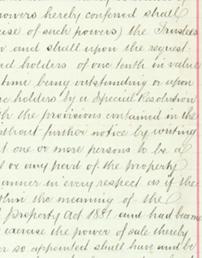 powers hereby conferred shall
use of such powers) the Trustees
r and shall upon the request
red holders of one tenth in value
time being outstanding or upon
e holders by a Special Resolution
th the provisions contained in the
without further notice by writing
t one or more persons to be a
l or any part of the property
anner in every respect as if the
within the meaning of the
d property Act 1881 and had become
exercise the power of sale thereby
er so appointed shall have and be